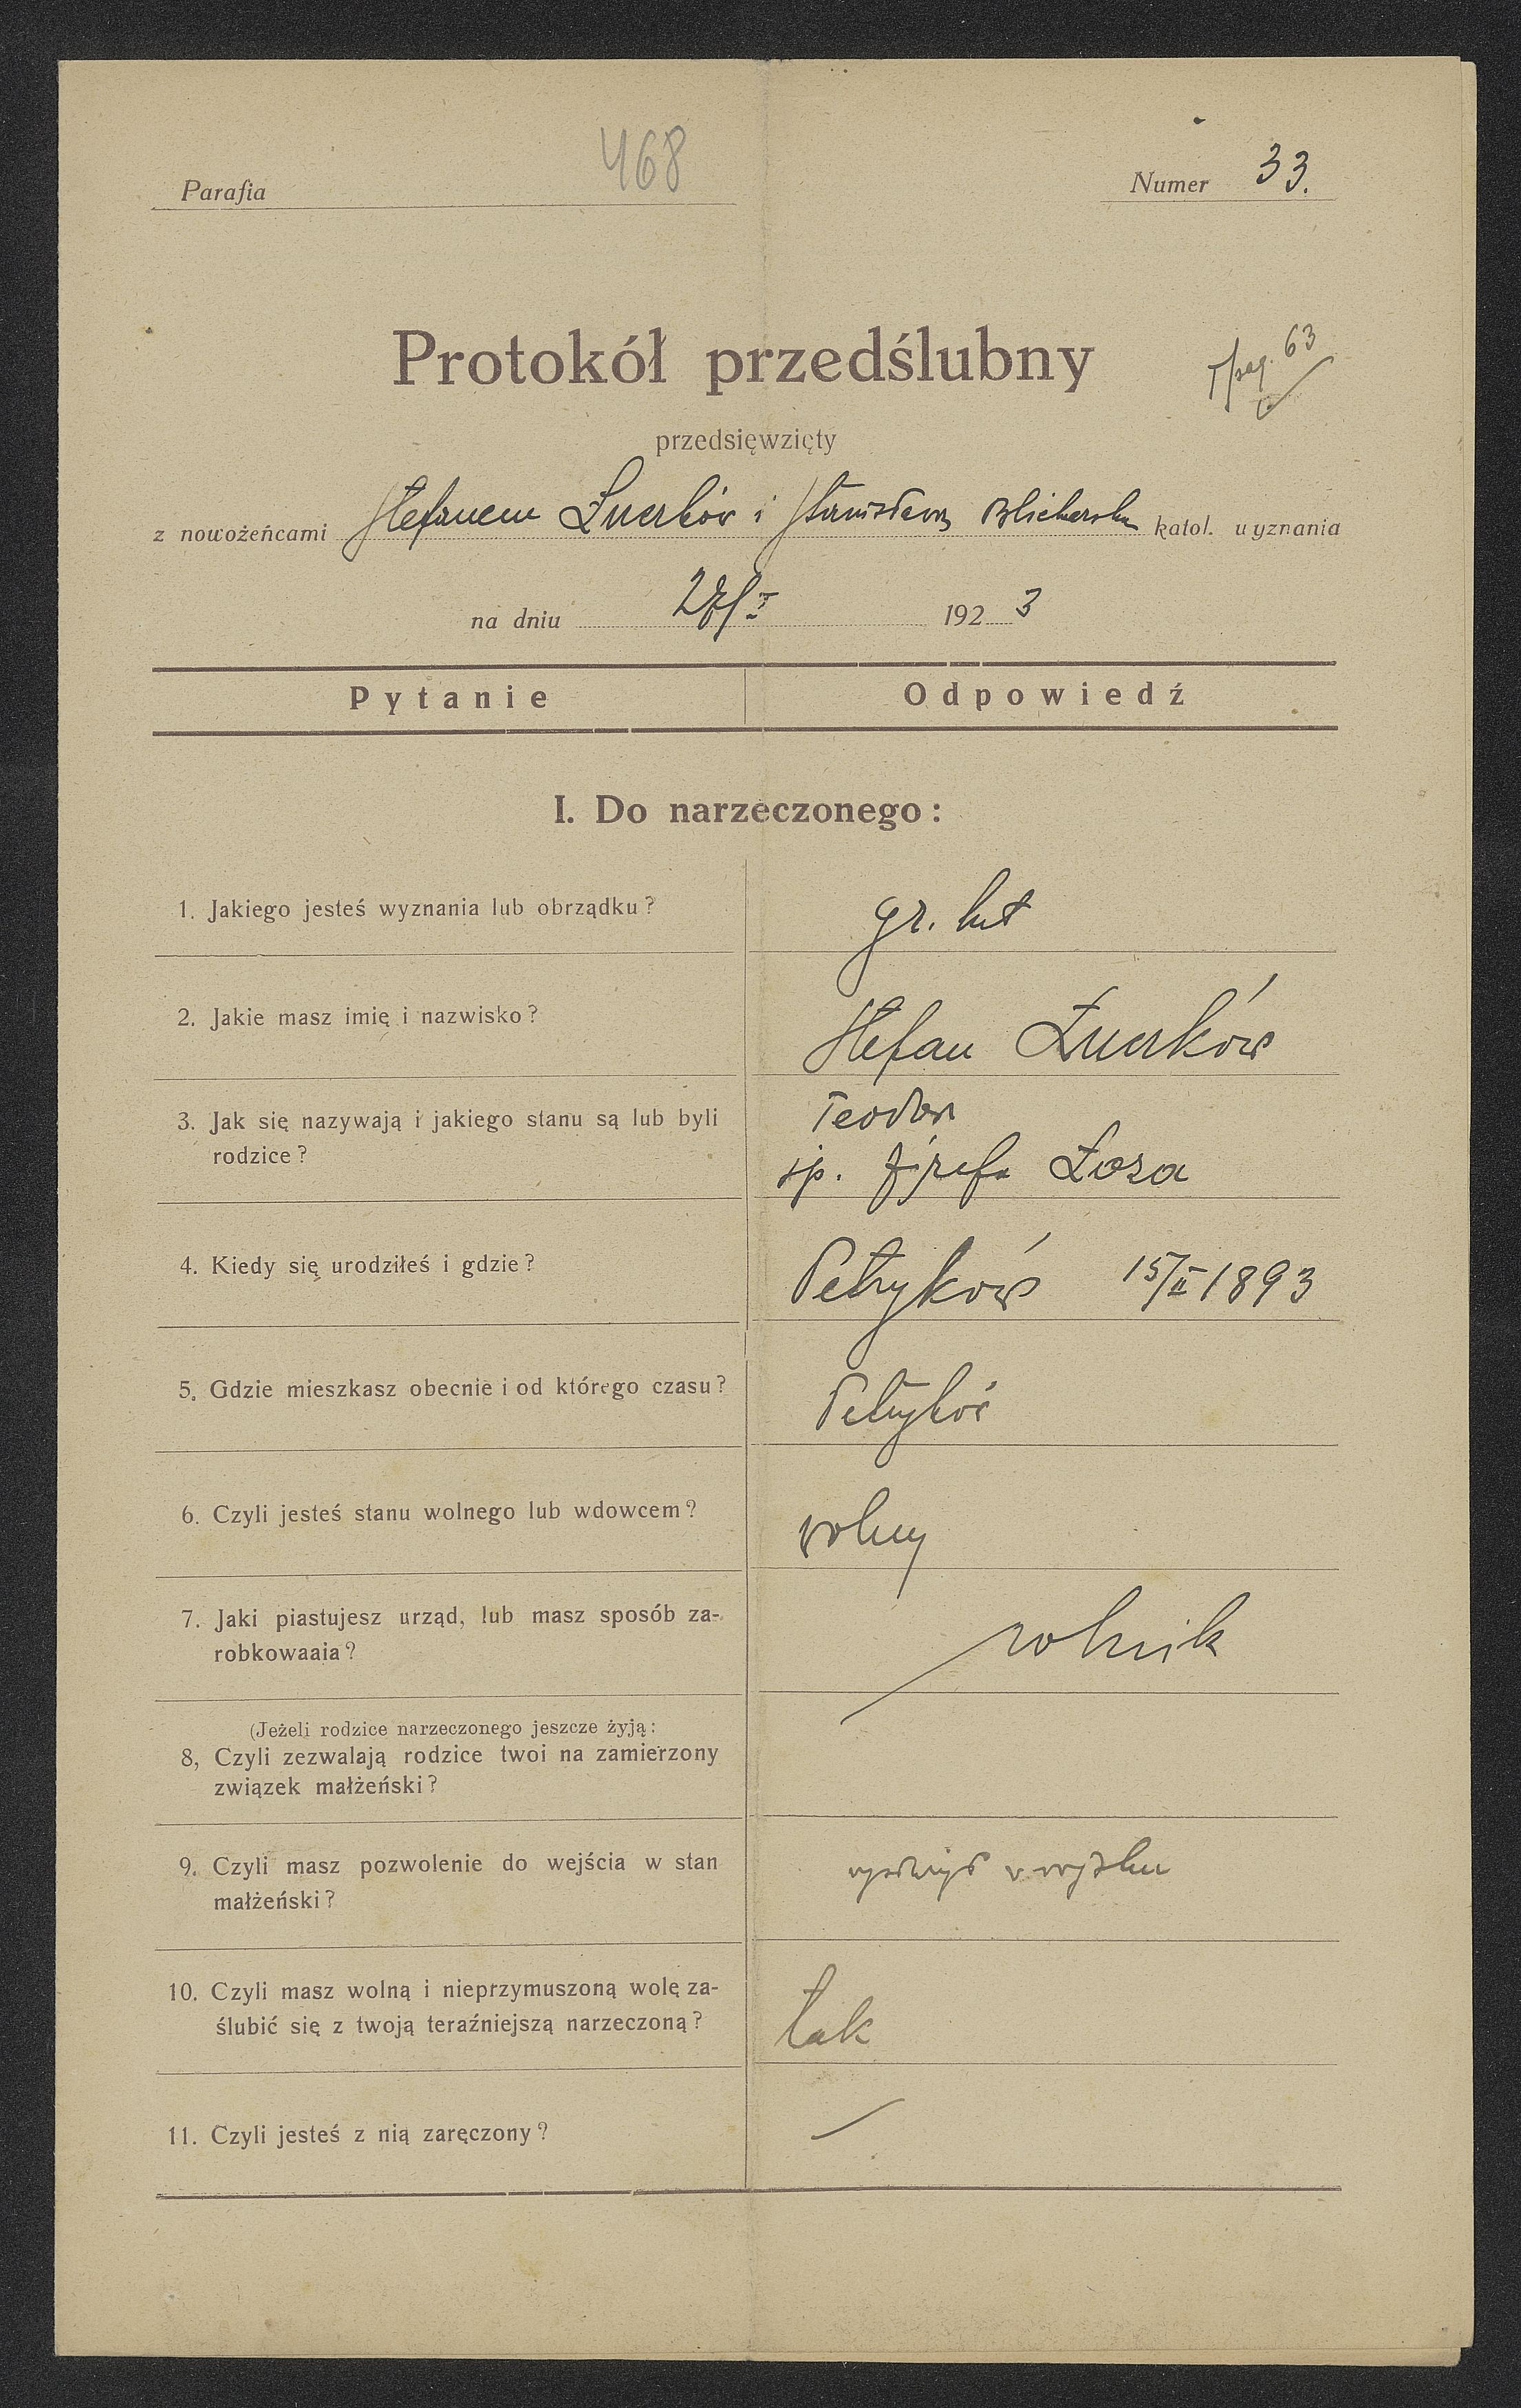 468
Parafia
Numer 33.
Protokół przedślubny
pag. 63
przedsięwzięty
z nowożeńcami Stefanem i katol. wyznania
na dniu 192 3
Pytanie Odpowiedź
I. Do narzeczonego:
1. Jakiego jesteś wyznania lub obrządku? gr. kat
2. Jakie masz imię i nazwisko? Stefan
3. Jak się nazywają i jakiego stanu są lub byli Teodor
rodzice? śp. Józefa Łoza
4. Kiedy się urodziłeś i gdzie? Petryków 15/II 1893
5. Gdzie mieszkasz obecnie i od którego czasu? Petryków
6. Czyli jesteś stanu wolnego lub wdowcem? wolny
7. Jaki piastujesz urząd, lub masz sposób za-
robkowaaia? rolnik
(Jeżeli rodzice narzeczonego jeszcze żyją:
8, Czyli zezwalają rodzice twoi na zamierzony
związek małżeński?
9. Czyli masz pozwolenie do wejścia w stan
małżeński?
10. Czyli masz wolną i nieprzymuszoną wolę za-
ślubić się z twoją teraźniejszą narzeczoną? tak
11. Czyli jesteś z nią zaręczony? —